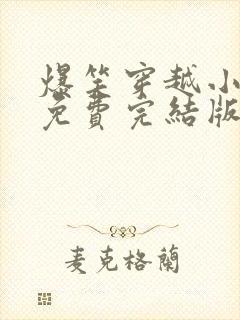 爆笑穿越小
免費完結版
麦克格蘭